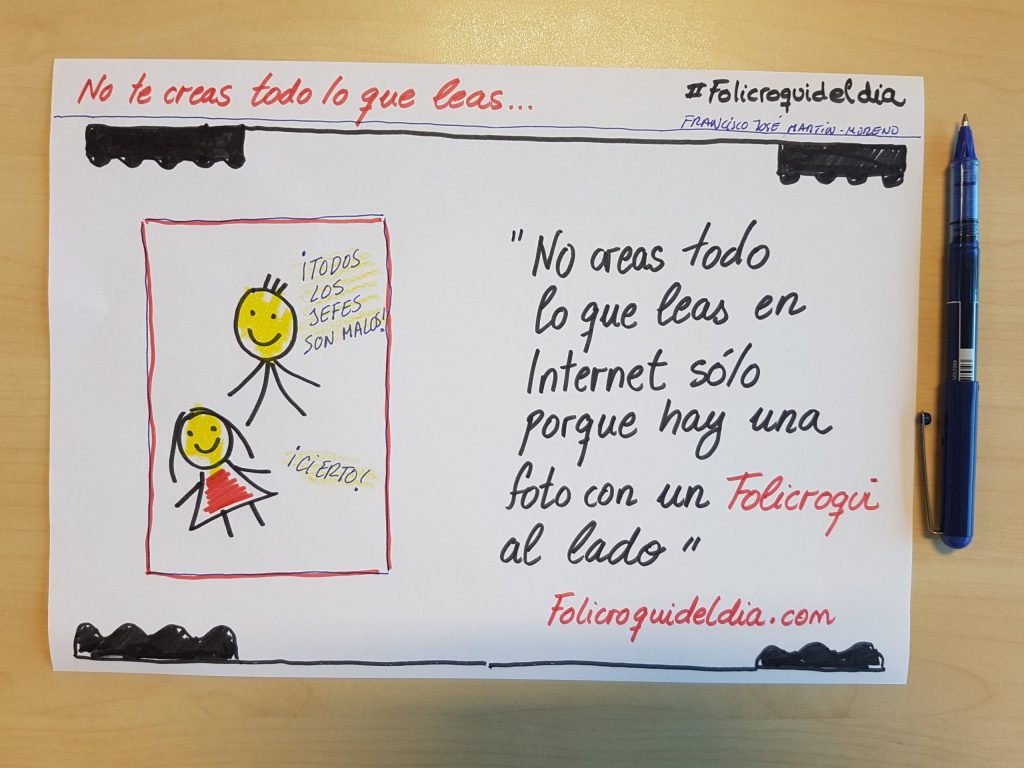 No te creas todo lo que leas...
#Folicroquideldia
FRANCISCO JOSÉ MARTÍN-MORENO
¡TODOS
LOS
JEFES
SON MALOS!
¡CIERTO!
"No creas todo
lo que leas en
Internet sólo
porque hay una
foto con un Folicroqui
al lado"
Folicroquideldia.com